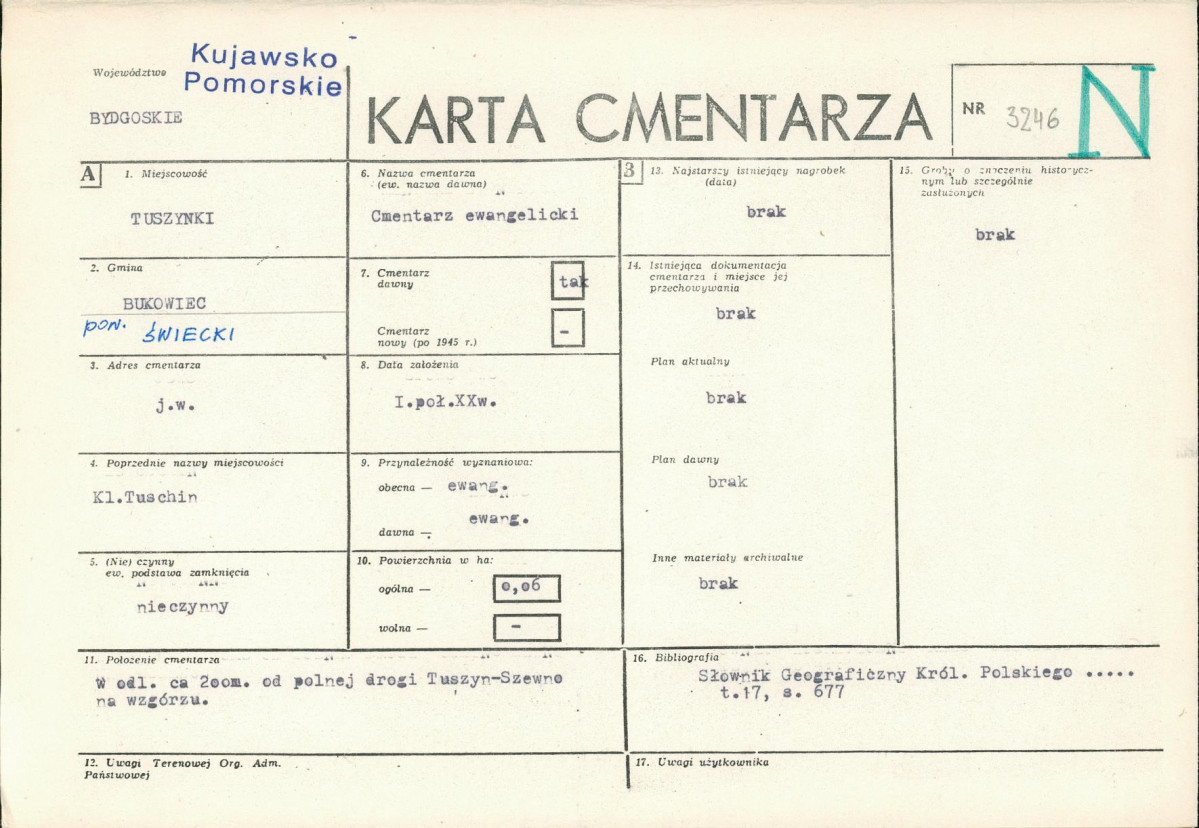 Województwo
Kujawsko
Pomorskie
BYDGOSKIE
KARTA CMENTARZA
NR 3246
N
A
1. Miejscowość
TUSZYNKI
2. Gmina
BUKOWIEC
pow. ŚWIECKI
3. Adres cmentarza
j.w.
4. Poprzednie nazwy miejscowości
Kl.Tuschin
5. (Nie) czynny
ew. podstawa zamknięcia
nieczynny
6. Nazwa cmentarza
(ew. nazwa dawna)
Cmentarz ewangelicki
7. Cmentarz
dawny
tak
Cmentarz
nowy (po 1945 r.)
-
8. Data założenia
I.poł.XXw.
9. Przynależność wyznaniowa:
obecna — ewang.
ewang.
dawna —
10. Powierzchnia w ha:
ogólna — 0,06
wolna — -
B
13. Najstarszy istniejący nagrobek
(data)
brak
14. Istniejąca dokumentacja
cmentarza i miejsce jej
przechowywania
brak
Plan aktualny
brak
Plan dawny
brak
Inne materiały archiwalne
brak
15. Groby o znaczeniu historycz-
nym lub szczególnie
zasłużonych
brak
11. Położenie cmentarza
W odl. ca 2oom. od polnej drogi Tuszyn-Szewno
na wzgórzu.
16. Bibliografia
Słownik Geograficzny Król. Polskiego .....
t.17, s. 677
12. Uwagi Terenowej Org. Adm.
Państwowej
17. Uwagi użytkownika